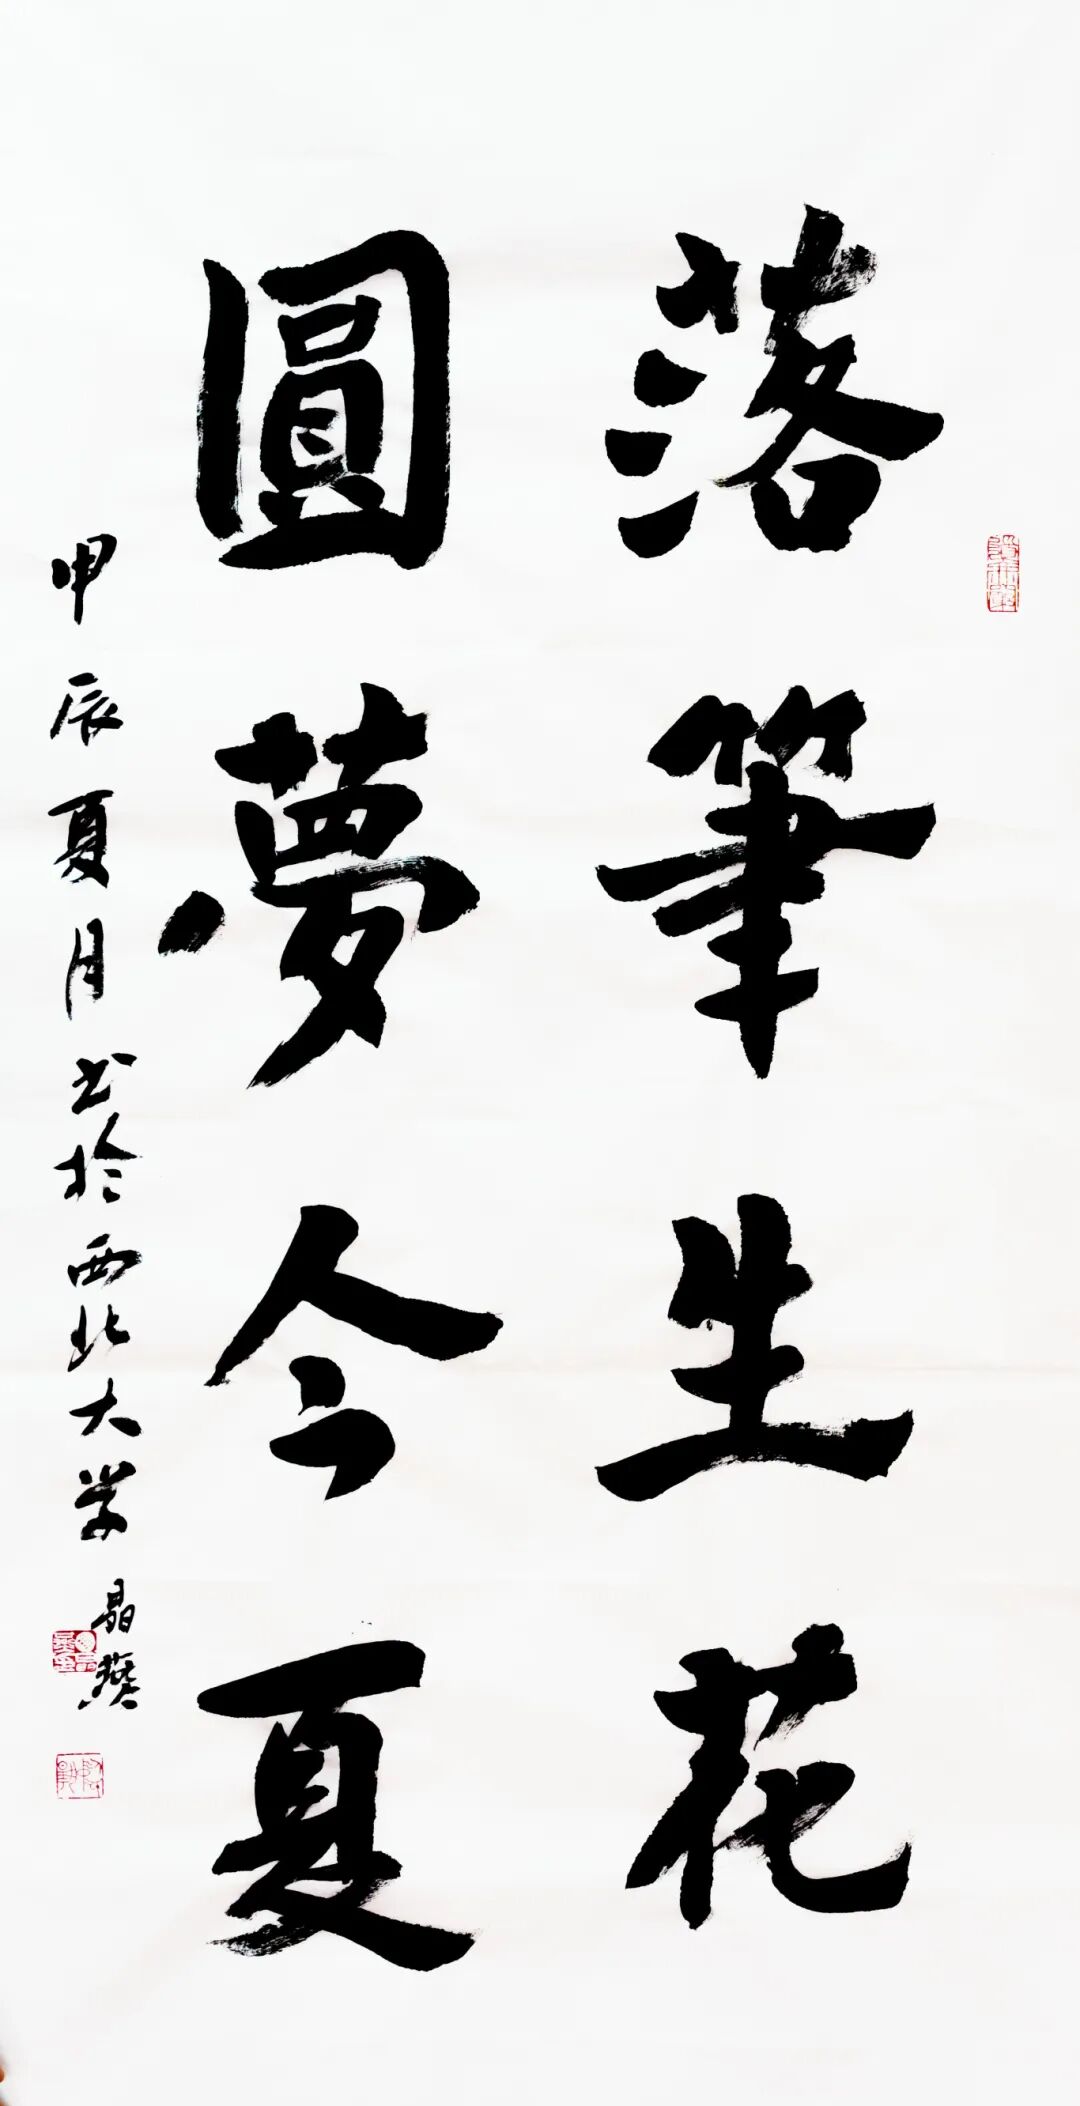 落筆生花
圓夢今夏
甲辰夏月书於西北大学 晶燕